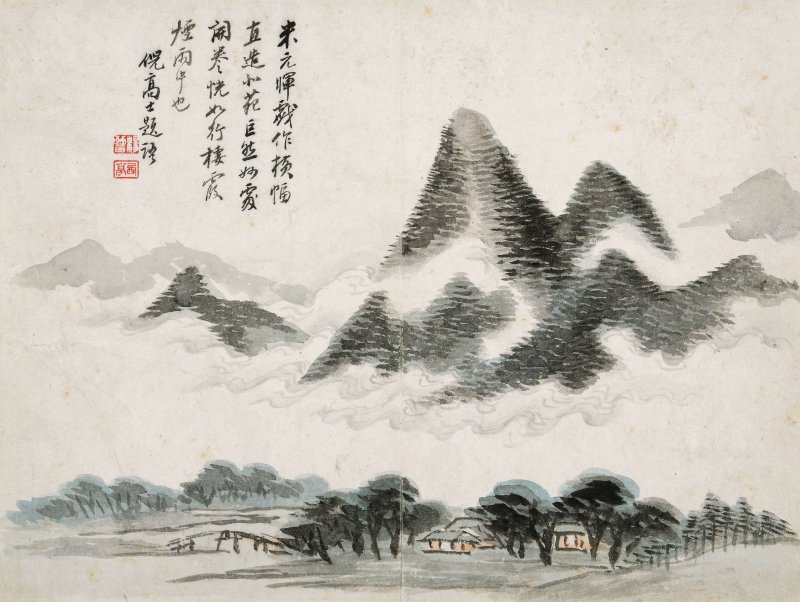 米元暉戲作橫幅
直造北苑巨然妙處
開卷恍如行棲霞
煙雨中也
倪高士題語